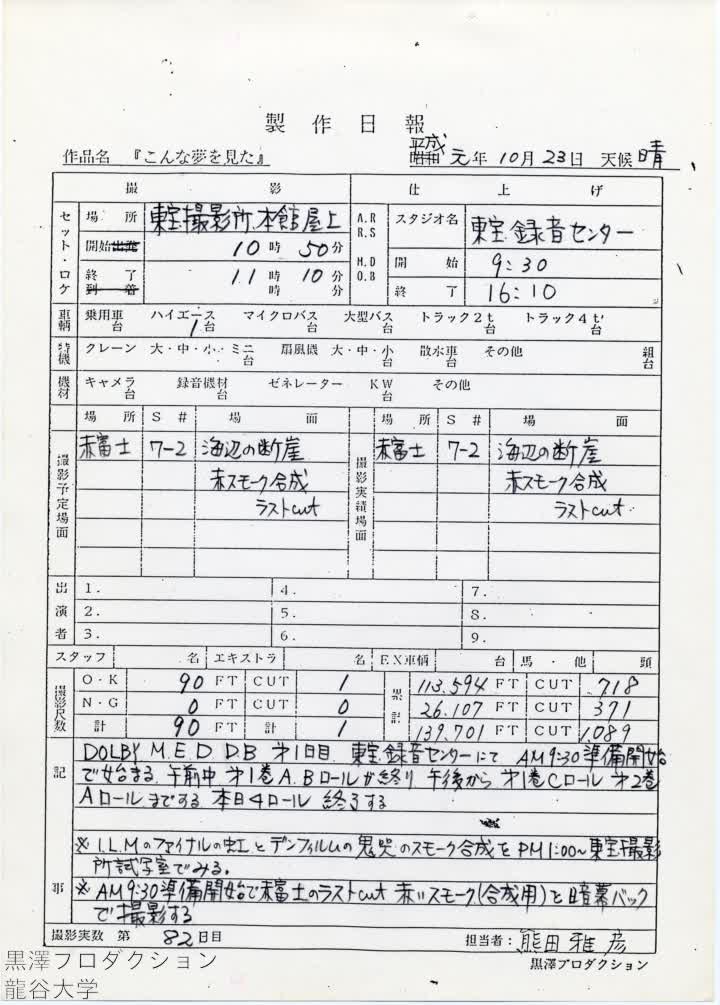 製作日報
作品名 『こんな夢を見た』 平成 昭和 元年 10月23日 天候 晴
撮影 仕上げ
セット・ロケ 場所 東宝撮影所、本館屋上 A.R R.S スタジオ名 東宝録音センター
開始出発 10時50分 M.D O.B 開始 9:30
終了 11時10分 終了 16:10
到着 時 分
車輌 乗用車 台 ハイエース 1台 マイクロバス 台 大型バス 台 トラック2t 台 トラック4t 台
特機 クレーン 大・中・小・ミニ 台 扇風機 大・中・小 台 散水車 台 その他 組 台
機材 キャメラ 台 録音機材 台 ゼネレーター KW 台 その他
場所 S# 場面 場所 S# 場面
撮影予定場面 赤富士 7-2 海辺の断崖 撮影実績場面 赤富士 7-2 海辺の断崖
赤スモーク合成 赤スモーク合成
ラストcut ラストcut
出演者 1. 4. 7.
2. 5. 8.
3. 6. 9.
スタッフ 名 エキストラ 名 EX車輌 台 馬・他 頭
撮影尺数 O・K 90 FT CUT 1 累計 113.594 FT CUT 718
N・G 0 FT CUT 0 26.107 FT CUT 371
計 90 FT 計 1 139.701 FT CUT 1.089
記事
DOLBY M.E.D DB 才1日目 東宝録音センターにて AM9:30準備開始
で始まる 午前中 才1巻A.Bロールが終り 午後から 才1巻Cロール 才2巻
Aロールまでする 本日4ロール 終了する
※ I.L.Mのファイナルの虹とデンフィルムの鬼哭のスモーク合成をPM1:00〜東宝撮影
所試写室でみる。
※ AM9:30準備開始で赤富士のラストcut 赤いスモーク(合成用)を暗幕バック
で撮影する
撮影実数 第 82日目 担当者: 熊田雅彦
黒澤プロダクション
黒澤プロダクション
龍谷大学